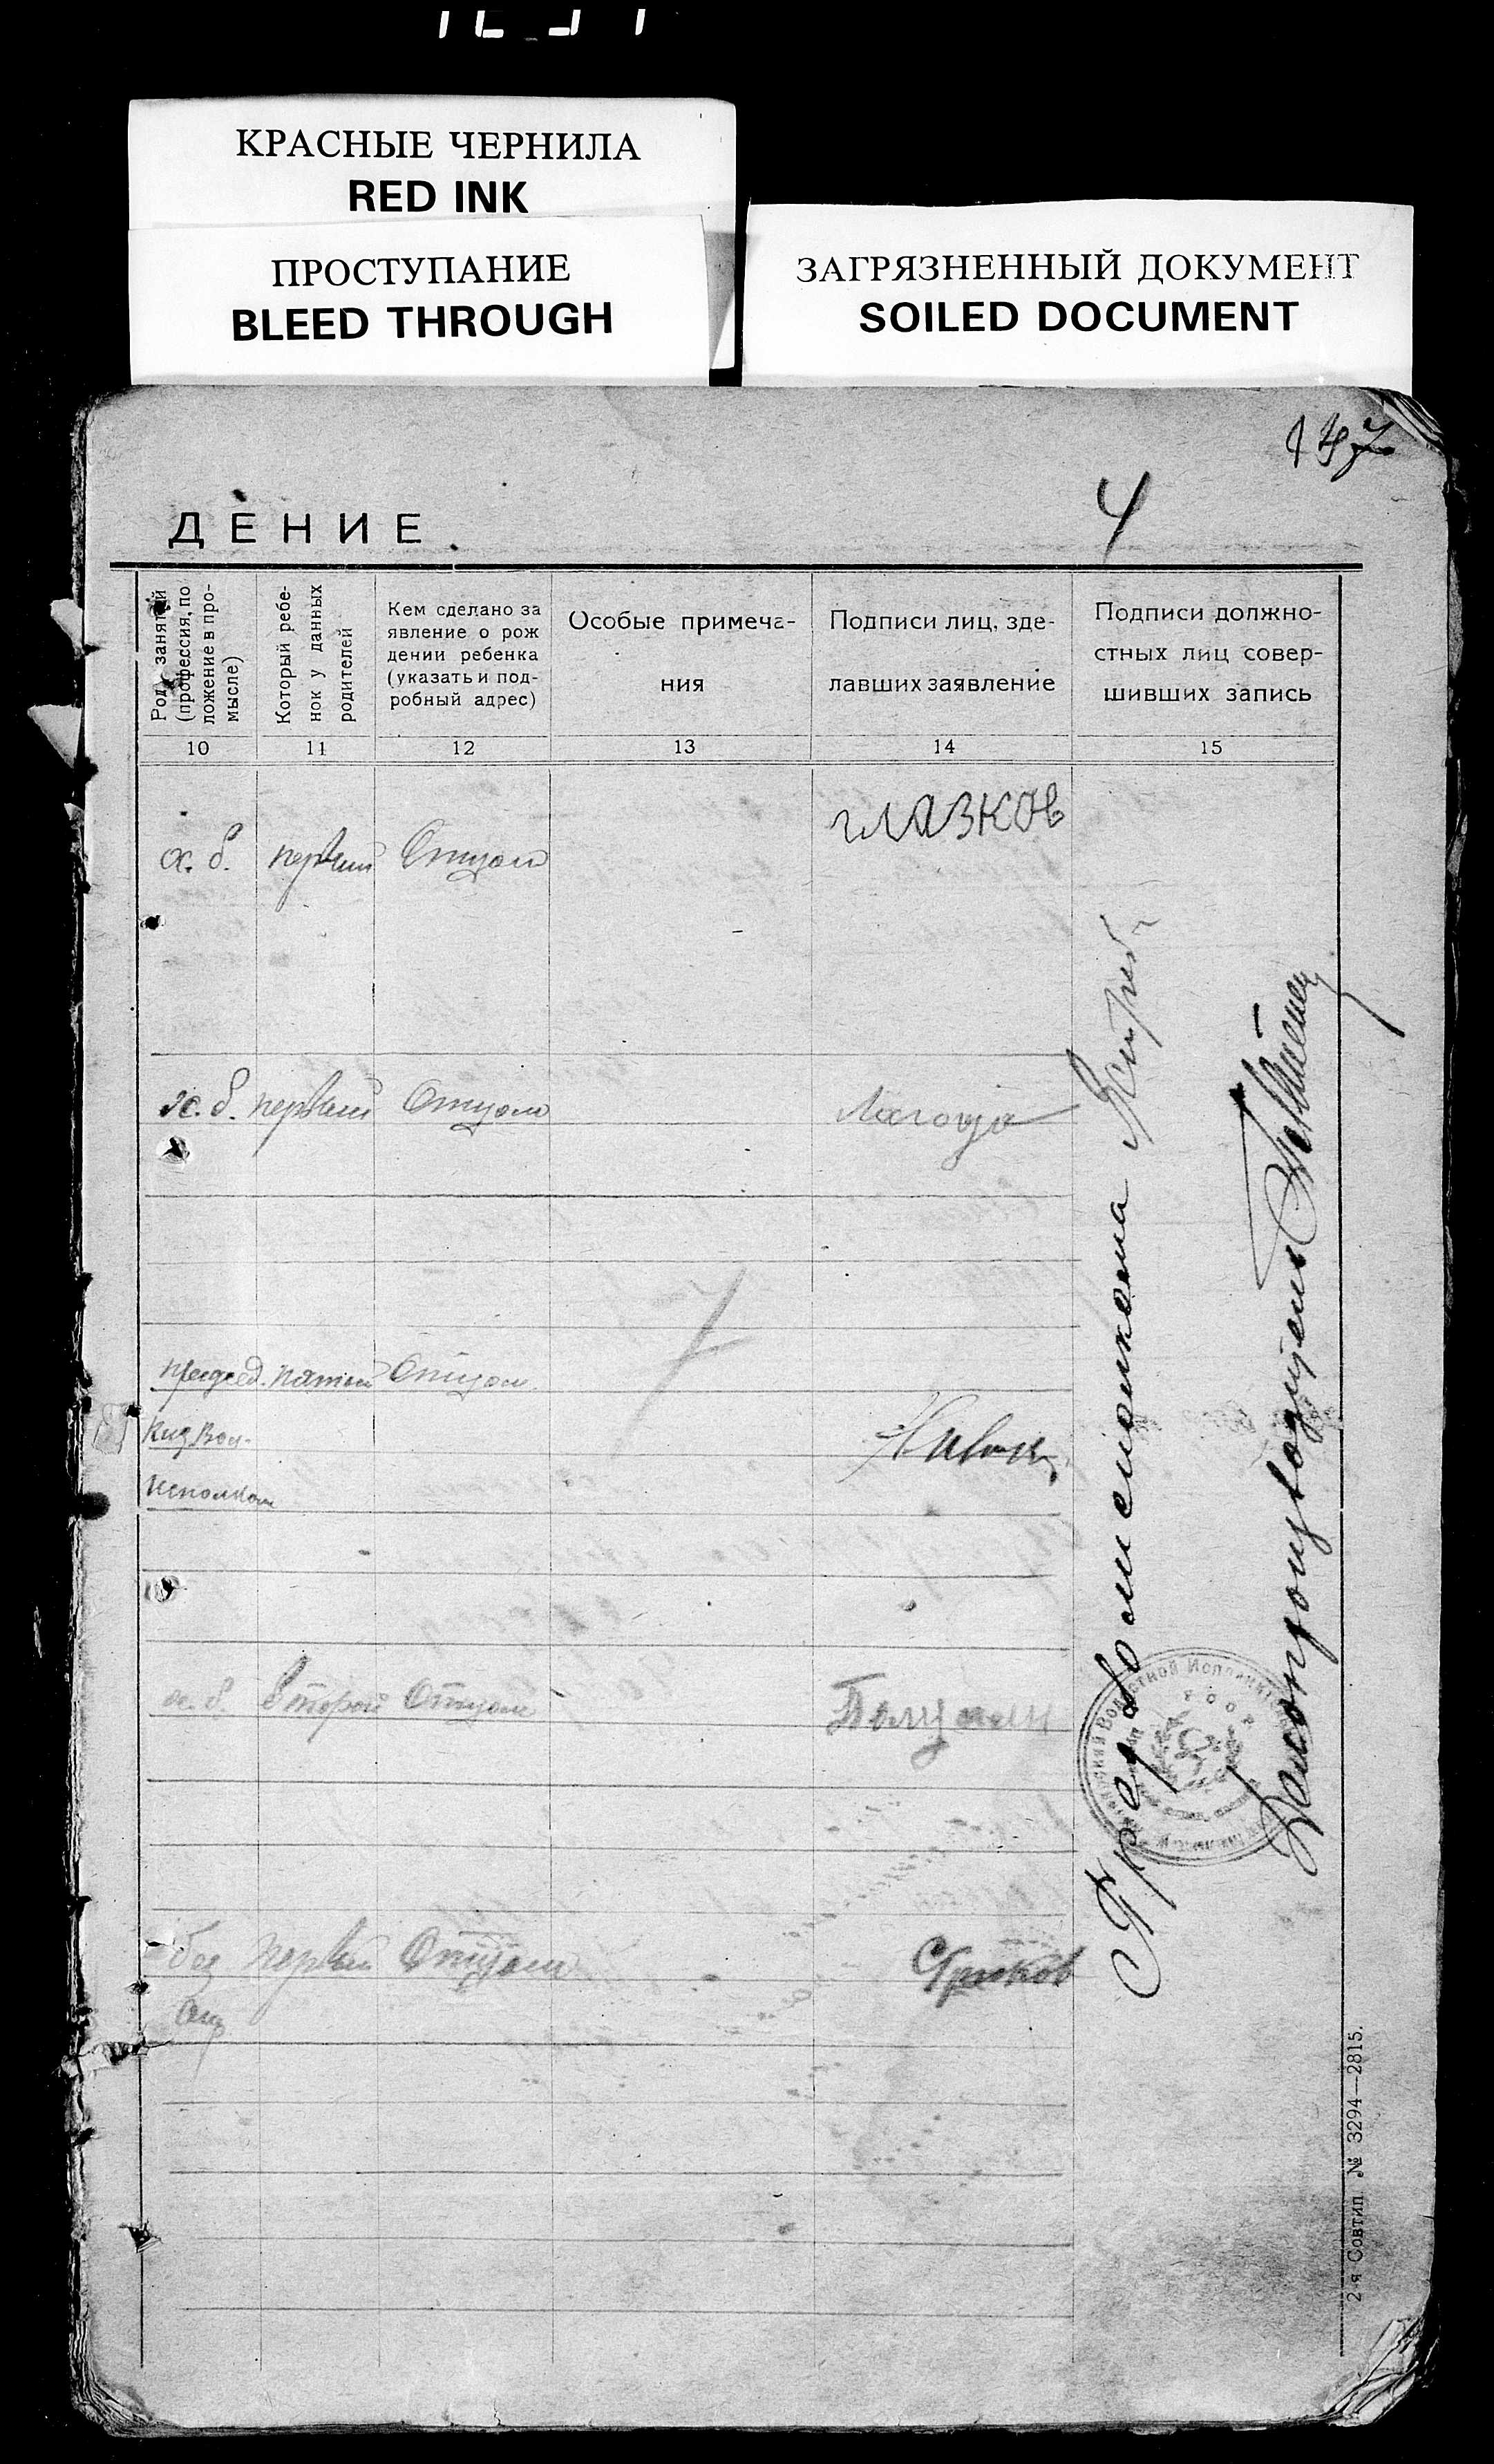 КРАСНЫЕ ЧЕРНИЛА
RED INK
ПРОСТУПАНИЕ
BLEED THROUGH
ЗАГРЯЗНЕННЫЙ ДОКУМЕНТ
SOILED DOCUMENT
147
4
ДЕНИЕ.
Род занятий
(профессия, по
ложение в про-
мысле)
Который ребе-
нок у данных
родителей
Кем сделано за
явление о рож
дении ребенка
(указать и под-
робный адрес)
Особые примеча-
ния
Подписи лиц, зде-
лавших заявление
Подписи должно-
стных лиц совер-
шивших запись
10 11 12 13 14 15
глазков
х. б. первый Отцом
х. б. первый Отцом
председ. пятый Отцом
Вол-
исполком
х. б. второй Отцом
без первый Отцом
Пред Волисполкома
Делопроизводитель
2-я Совтип. № 3294—2815.